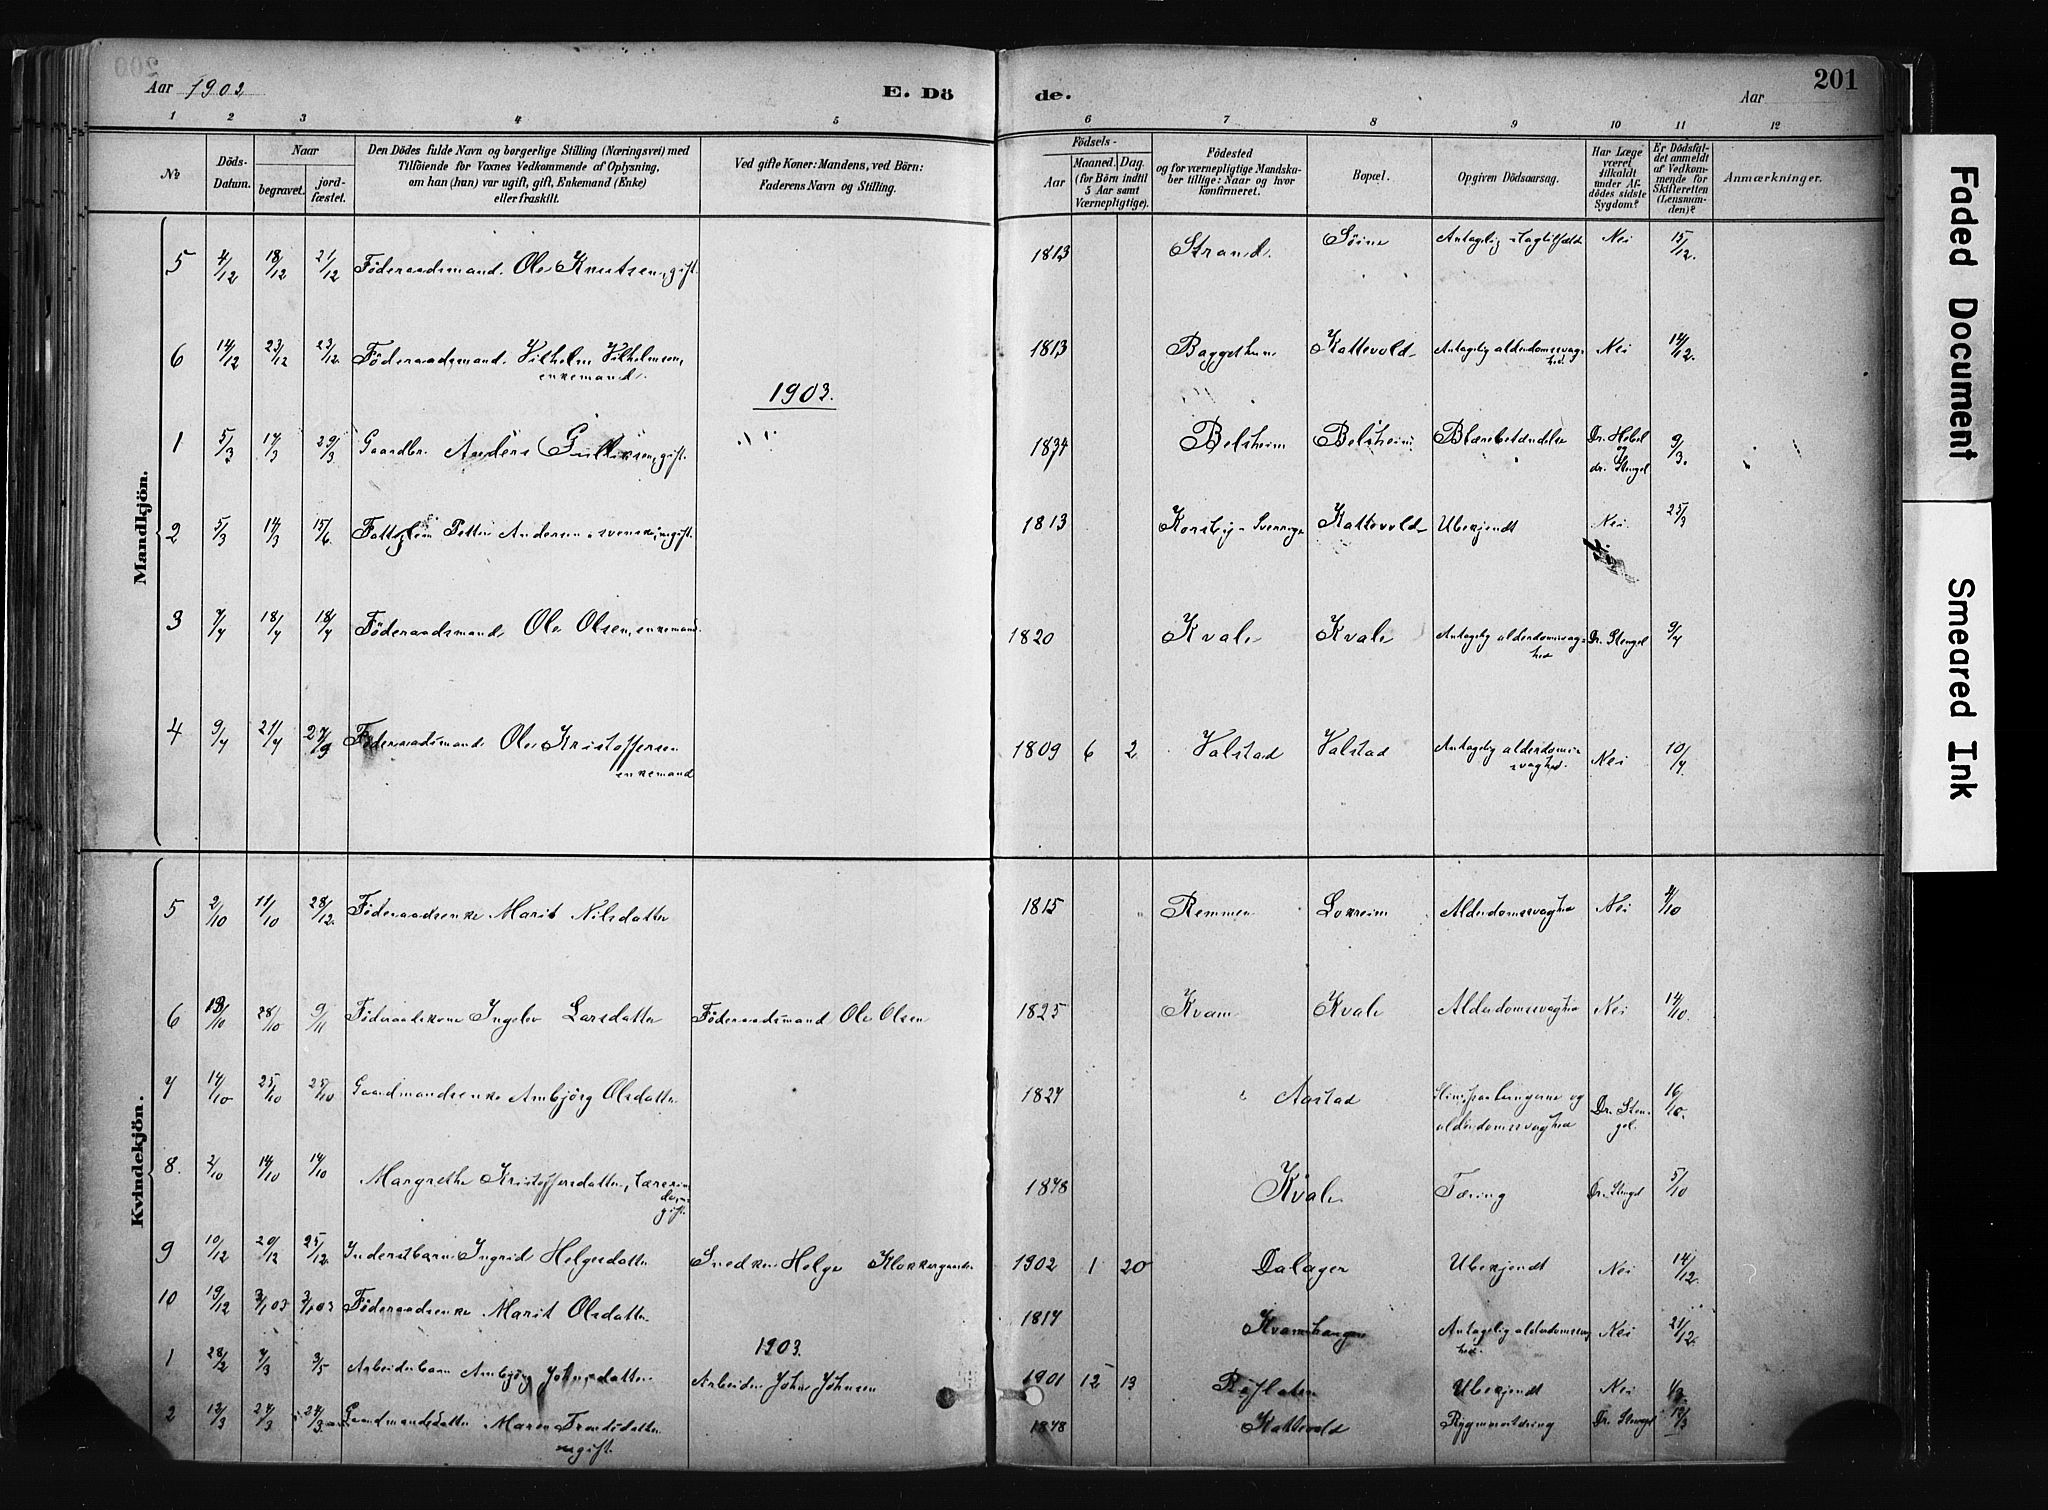 Aar 1902 E. Dö de. Aar 201
1 2 3 4 5 6 7 8 9 10 11 12
No
Döds-Datum.
Naar
begravet.
jord-fæstet.
Den Dödes fulde Navn og borgerlige Stilling (Næringsvei) med
Tilföiende for Voxnes Vedkommende af Oplysning,
om han (hun) var ugift, gift, Enkemand (Enke)
eller fraskilt.
Ved gifte Koner: Mandens, ved Börn:
Faderens Navn og Stilling.
Födsels-
Aar
Maaned. Dag.
(for Börn indtil
5 Aar samt
Værnepligtige).
Födested
og for værnepligtige Mandska-
ber tillige: Naar og hvor
konfirmeret.
Bopæl.
Opgiven Dödsaarsag.
Har Læge
været
tilkaldt
under Af-
dödes sidste
Sygdom?
Er Dödsfal-
det anmeldt
af Vedkom-
mende for
Skifteretten
(Lensman-
den)?
Anmærkninger.
Mandkjön.
5 4/12 18/12 21/12 Föderaadsmand Ole Knutsen, gift. 1813 Strand Söine Antagelig slagtilfælde Nei 15/12.
6 14/12 23/12 23/12 Föderaadsmand Vilhelm Vilhelmsen, 1813 Kattevold Antagelig alderdomssvag- Nei 14/12.
enkemand. hed.
1903.
1 5/3 14/3 29/3 Gaardbr. Anders Gulliksen, gift. 1834 Belsheim Belsheim Blærebetændelse Dr. Hebel 9/3.
og
dr. Stengel
2 5/3 14/3 15/6 Andersen, svensk, ugift. 1813 Kattevold Ubekjendt Nei 25/3
3 7/4 18/4 18/4 Föderaadsmand Ole Olsen, enkemand. 1820 Kvale Kvale Antagelig alderdomssvag- Dr. Stengel 9/4
hed
4 9/4 21/4 27/9 Föderaadsmand Ole Kristoffersen 1809 6 2 Valstad Valstad Antagelig alderdoms- Nei 10/4.
enkemand svaghed.
Kvindekjön.
5 2/10 11/10 28/12. Föderaadsenke Marit Nilsdatter 1815 Remmen Lokreim Alderdomssvaghed Nei 4/10
6 13/10 28/10 9/11 Föderaadskone Ingelev Larsdatter Föderaadsmand Ole Olsen 1825 Kvam Kvale Alderdomssvaghed Nei 14/10.
7 14/10 25/10 25/10 Gaardmandsenke Ambjörg Olsdatter 1827 Aastad og Dr. Sten- 16/10.
alderdomssvaghed gel.
8. 2/10 14/10 14/10 Margrethe Kristoffersdatter, Lærerin- 1878 Kvale Tæring Dr. Stengel 5/10
de, u-
gift.
9 10/12 20/12 25/12. Inderstbarn Ingrid Helgesdatter Snedker Helge Klokkergaarden 1902 1 20 Dalager Ubekjendt Nei 14/12.
10 19/12 3/1 03 3/1 03 Föderaadsenke Marit Olsdatter 1817 Kvamhaugen Antagelig alderdomssvag- Nei 21/12.
hed.
1903.
1 28/2 7/3 3/5 Arbeiderbarn Ambjörg Johnsdatter Arbeider John Johnsen 1901 12 13 Ubekjendt Nei 1/3
2 12/3 24/3 24/3 Gaardmandsdatter Maren 1878 Kattevold Rygmarvstæring Dr. Stengel 12/3
ugift.
Faded Document
Smeared Ink